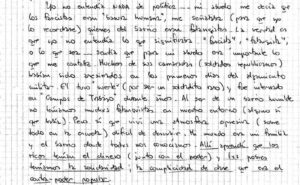 Yo no entendía nada de política --- mi abuelo me decía que
los fascistas eran "buenos hombres", me señalaba (para que yo
lo recordase) quienes del barrio eran falangistas. La verdad es
que yo no entendía lo que significaba "fascista", "falangista",
o lo que sea
que me contaba. Muchos de sus camaradas (soldados republicanos)
habían sido asesinados en los primeros días del alzamiento
militar. Él tuvo "suerte" (por ser un soldadito raso) y fue internado
en Campos de Trabajo durante años. Al ser de un barrio humilde
no teníamos muchos falangistas en nuestro entorno (alguno sí
que había). Pero sí que viví una atmósfera opresiva (sobre
todo en la escuela) difícil de describir. Mi mundo era mi familia
y el barrio donde todos nos conocíamos. Allí aprendí que los
ricos tenían el dinero (junto con el poder) y los pobres
teníamos la solidaridad, la complicidad de clase que era el
contra-poder popular.